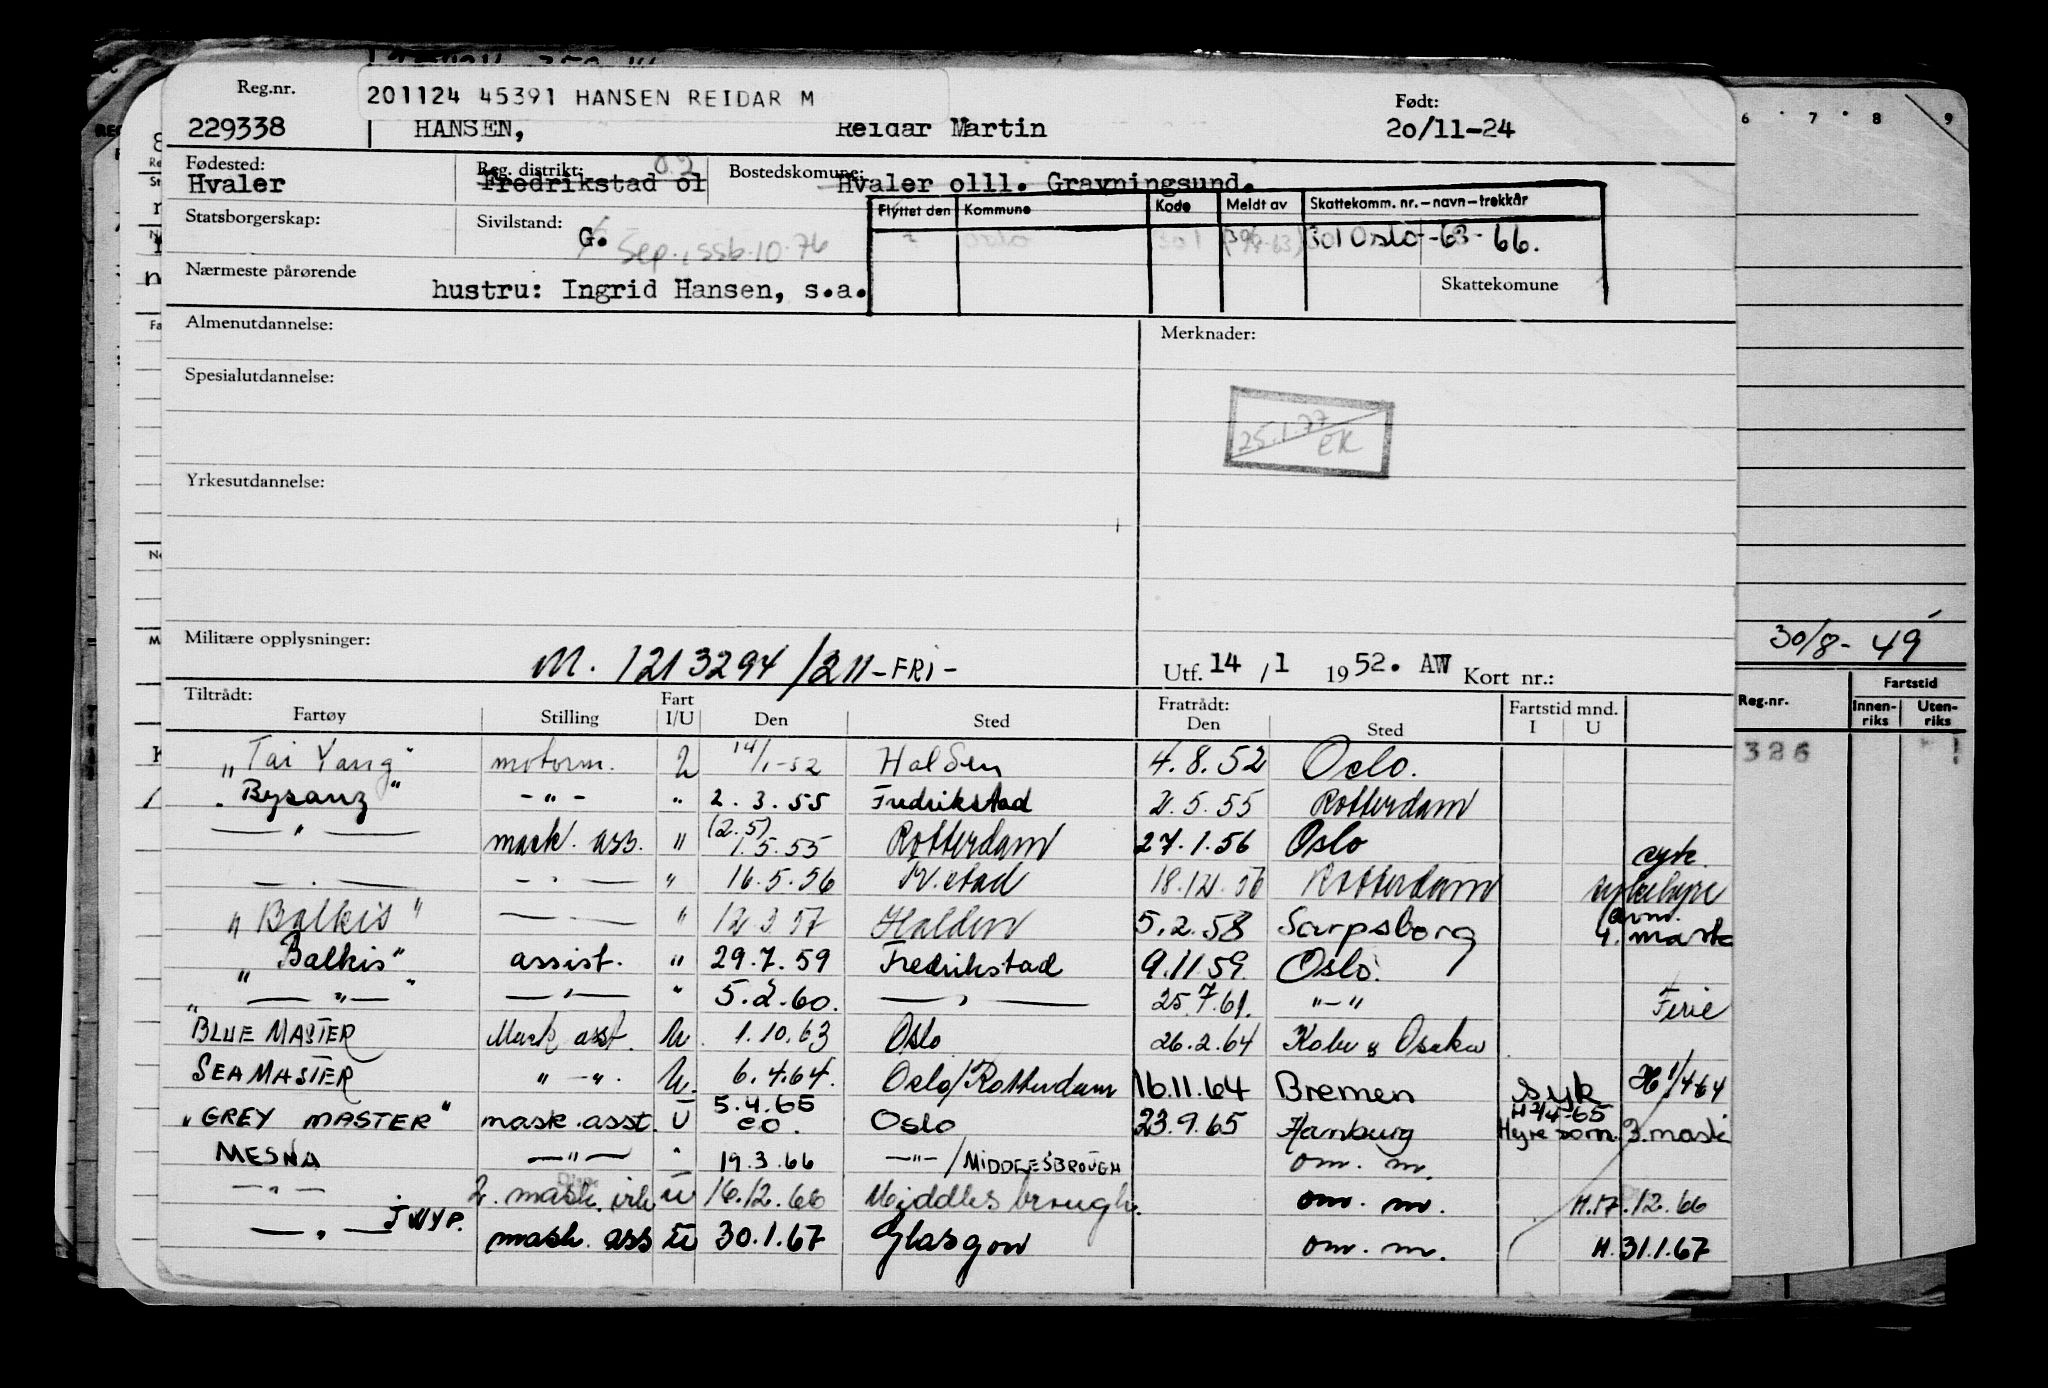 Reg.nr. 201124 45391 HANSEN REIDAR M Født:
229338 HANSEN, Reidar Martin 20/11-24
Fødested: Reg. distrikt: 02 Bostedskomune:
Hvaler Fredrikstad 01 Hvaler olll. Gravningsund.
Statsborgerskap: Sivilstand: Flyttet den Kommune Kode Meldt av Skattekomm. nr.-navn-trekkår
G. Sep., ssb. 10-76 Oslo 301 301 Oslo -63- 66.
Nærmeste pårørende Skattekomune
hustru: Ingrid Hansen, s.a.
Almenutdannelse: Merknader:
Spesialutdannelse:
25.1.77 EK
Yrkesutdannelse:
Militære opplysninger: M. 1213294/211-FRI- Utf. 14/1 1952. AW Kort nr.:
30/8-49
Tiltrådt: Fart Fratrådt: Fartstid mnd.
Fartøy Stilling I/U Den Sted Den Sted I U
Reg.nr. Fartstid
Innenriks Utenriks
326
"Tai Yang" motorm. U 14/1-52 Halden 4.8.52 Oslo.
"Bysanz" -"- " 2.3.55 Fredrikstad 2.5.55 Rotterdam
—"— mask. ass. " (2.5) 1.5.55 Rotterdam 27.1.56 Oslo
—"— —"— " 16.5.56 Fr.stad 18.12.56 Rotterdam syk. sykehyre
"Balkis" —"— " 12.3.57 Halden 5.2.58 Sarpsborg avm. 4. mask
"Balkis" assist. " 29.7.59 Fredrikstad 9.11.59. Oslo.
"—"—" —"— " 5.2.60. —"— 25.7.61. "-" Ferie
BLUE MASTER Mask asst. U. 1.10.63 Oslo 26.2.64 Kobe Osaka
SEA MASTER "-". U. 6.4.64. Oslo/Rotterdam 16.11.64 Bremen syk H 1/4-64
"GREY MASTER" mask. asst. U 5.4.65 co. Oslo 23.9.65 Hamburg H 2/4-65 Hyre som. 3. mask
MESNA —"— " 19.3.66 —"—/MIDDLESBROUGH om. m.
-"- 2. mask. U 16.12.66 Middlesbrough. om. m. H.17.12.66
—"— JWYP. mask. ass U 30.1.67 Glasgow om. m. H. 31.1.67